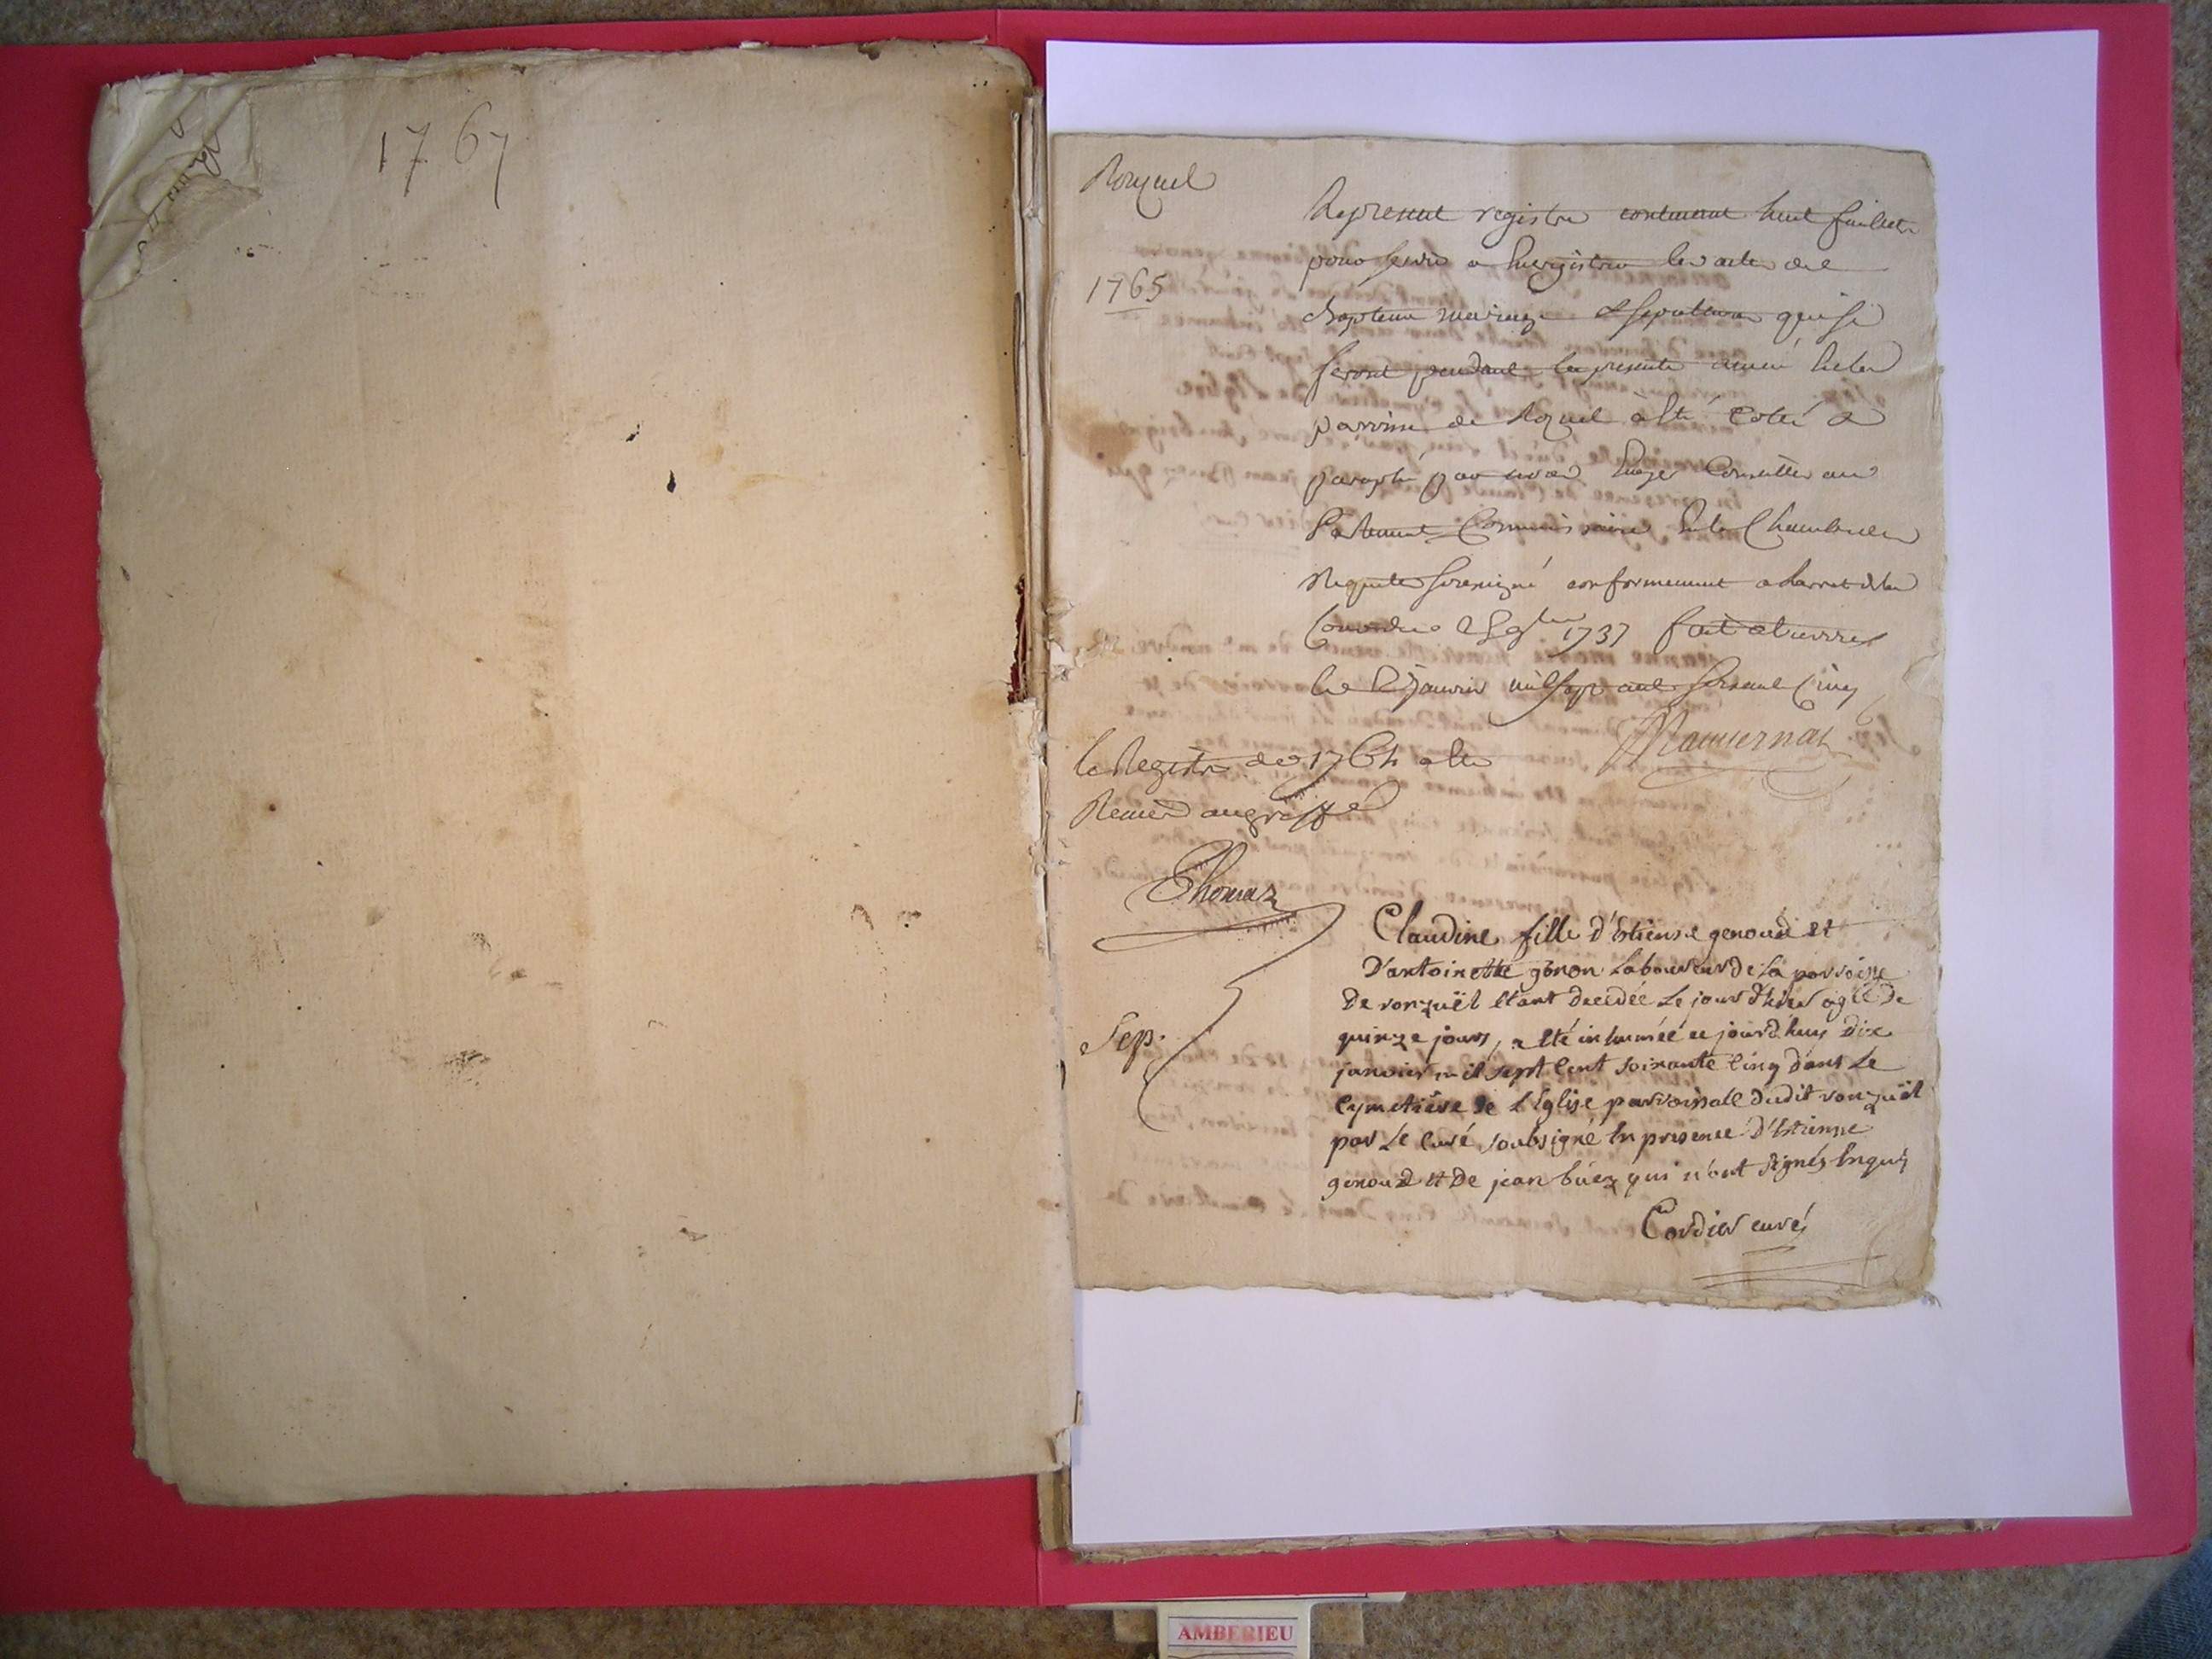 1767
Ronzuel
1765
Le present registre contenant huit feuillets
pour servir a Enregistrer les actes de
Bapteme mariage & sepulture qui se
feront pendant la presente année En la
paroisse de Rozuel a Eté Cotté &
paraphé par nous Conseiller au
Parlement Commissaire En la Chambre des
Requetes soussigné conformement a larret de la
Cour du 1737 fait a Trevoux
le janvier mil sept cent soixante Cinq
le Registre de 1764 a Eté
Remis au greffe
Thomas
Claudine fille d'Estienne genoud et
D'antoinette genon Laboureur de La parroisse
De ronzuël Etant decedée Le jour d'hier agée de
Sep.
quinze jours, a Eté inhumée ce jourd'huy dix
janvier mil sept Cent soixante Cinq dans Le
Cymetière de L'Eglise parroissialle dudit ronzuël
par Le Curé soubsigné En presence d'Estienne
genoud et De jean büez qui n'ont signés Enquis
Cordier curé
AMBERIEU